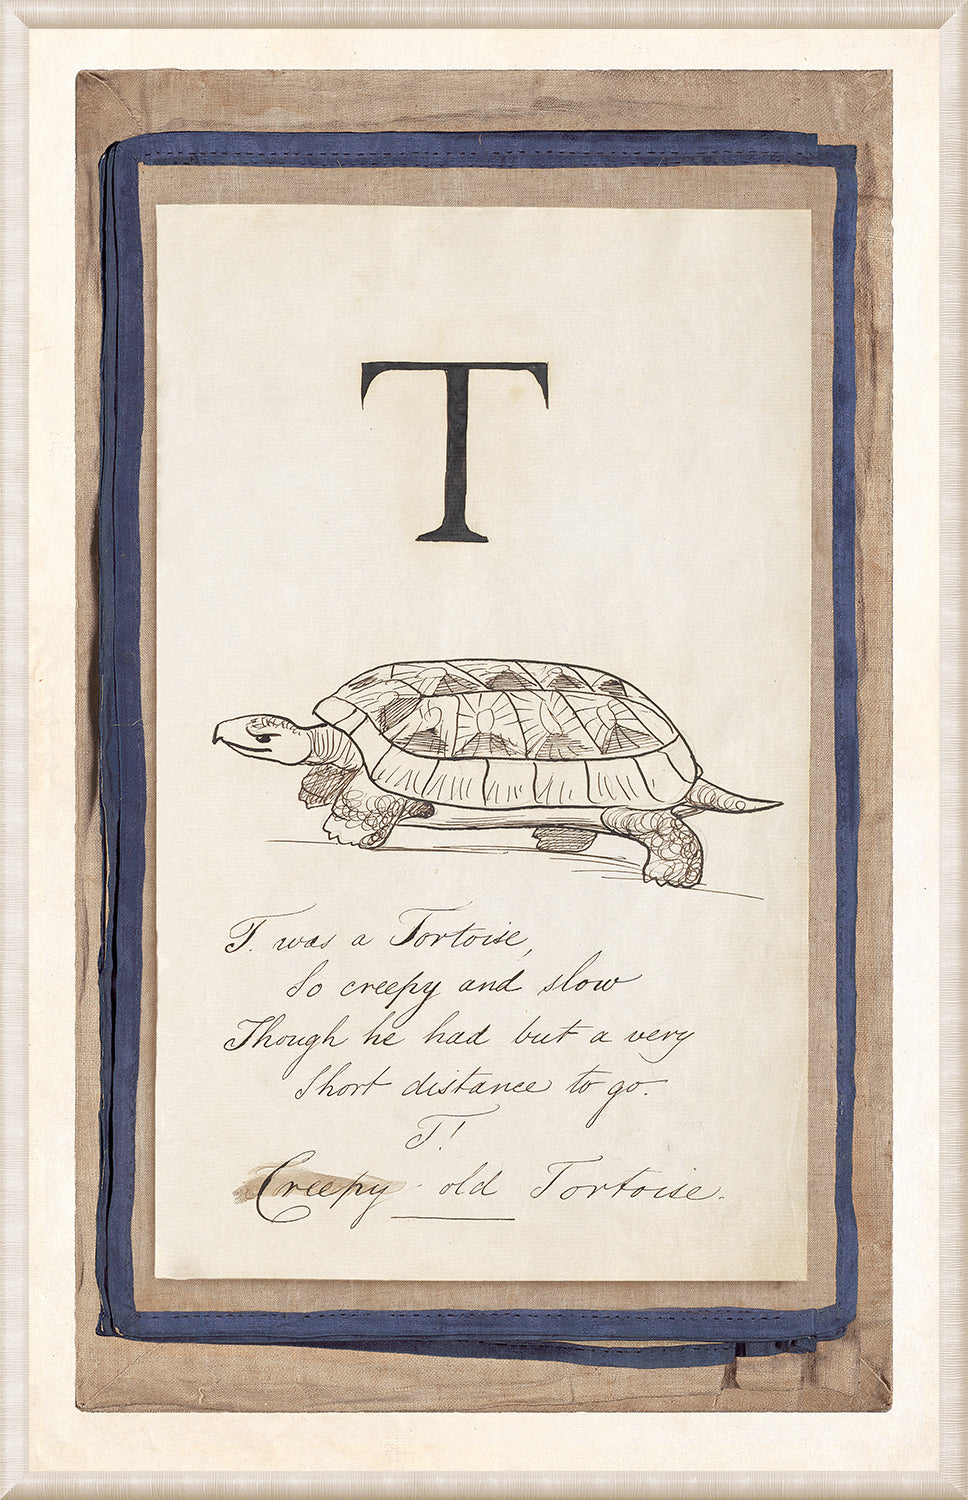 T
T. was a Tortoise,
So creepy and slow
Though he had but a very
Short distance to go.
T!
Creepy old Tortoise.